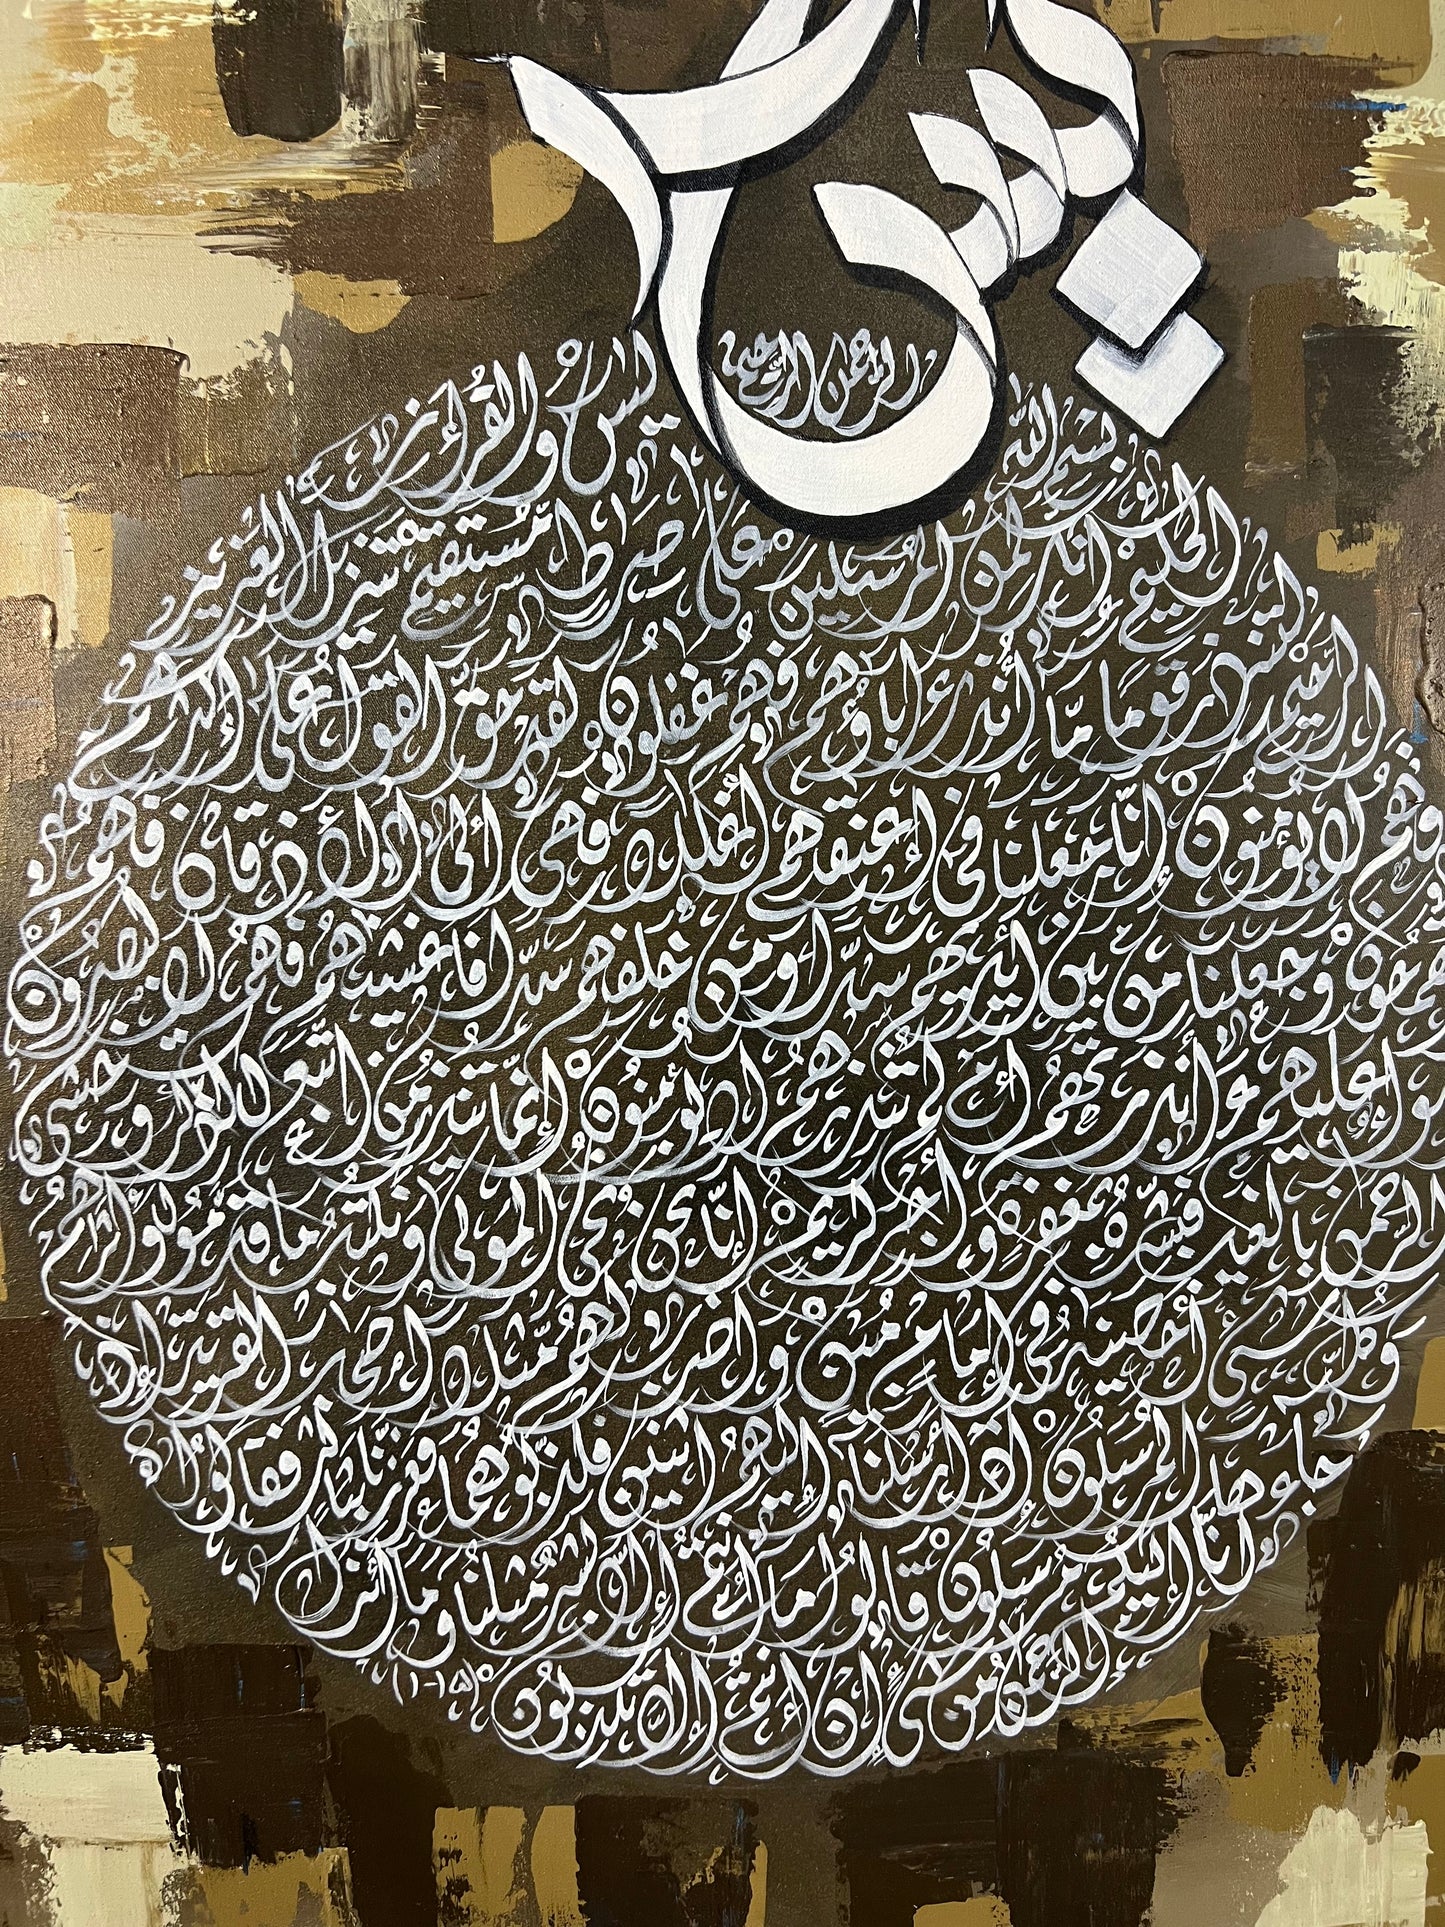 يس
بسم الله الرحمن الرحيم يس والقرءان
الحكيم إنك لمن المرسلين على صرط مستقيم تنزيل العزيز
الرحيم لتنذر قوما ما أنذر ءاباؤهم فهم غفلون لقد حق القول على أكثرهم
فهم لا يؤمنون إنا جعلنا في أعنقهم أغللا فهي إلى الأذقان فهم
مقمحون وجعلنا من بين أيديهم سدا ومن خلفهم سدا فأغشينهم فهم لا يبصرون
وسواء عليهم ءأنذرتهم أم لم تنذرهم لا يؤمنون إنما تنذر من اتبع الذكر وخشي
الرحمن بالغيب فبشره بمغفرة وأجر كريم إنا نحن نحي الموتى ونكتب ما قدموا وءاثرهم
وكل شيء أحصينه في إمام مبين واضرب لهم مثلا أصحب القرية إذ
جاءها المرسلون إذ أرسلنا إليهم اثنين فكذبوهما فعززنا بثالث فقالوا
إنا إليكم مرسلون قالوا ما أنتم إلا بشر مثلنا وما أنزل
الرحمن من شيء إن أنتم إلا تكذبون (١-١٥)